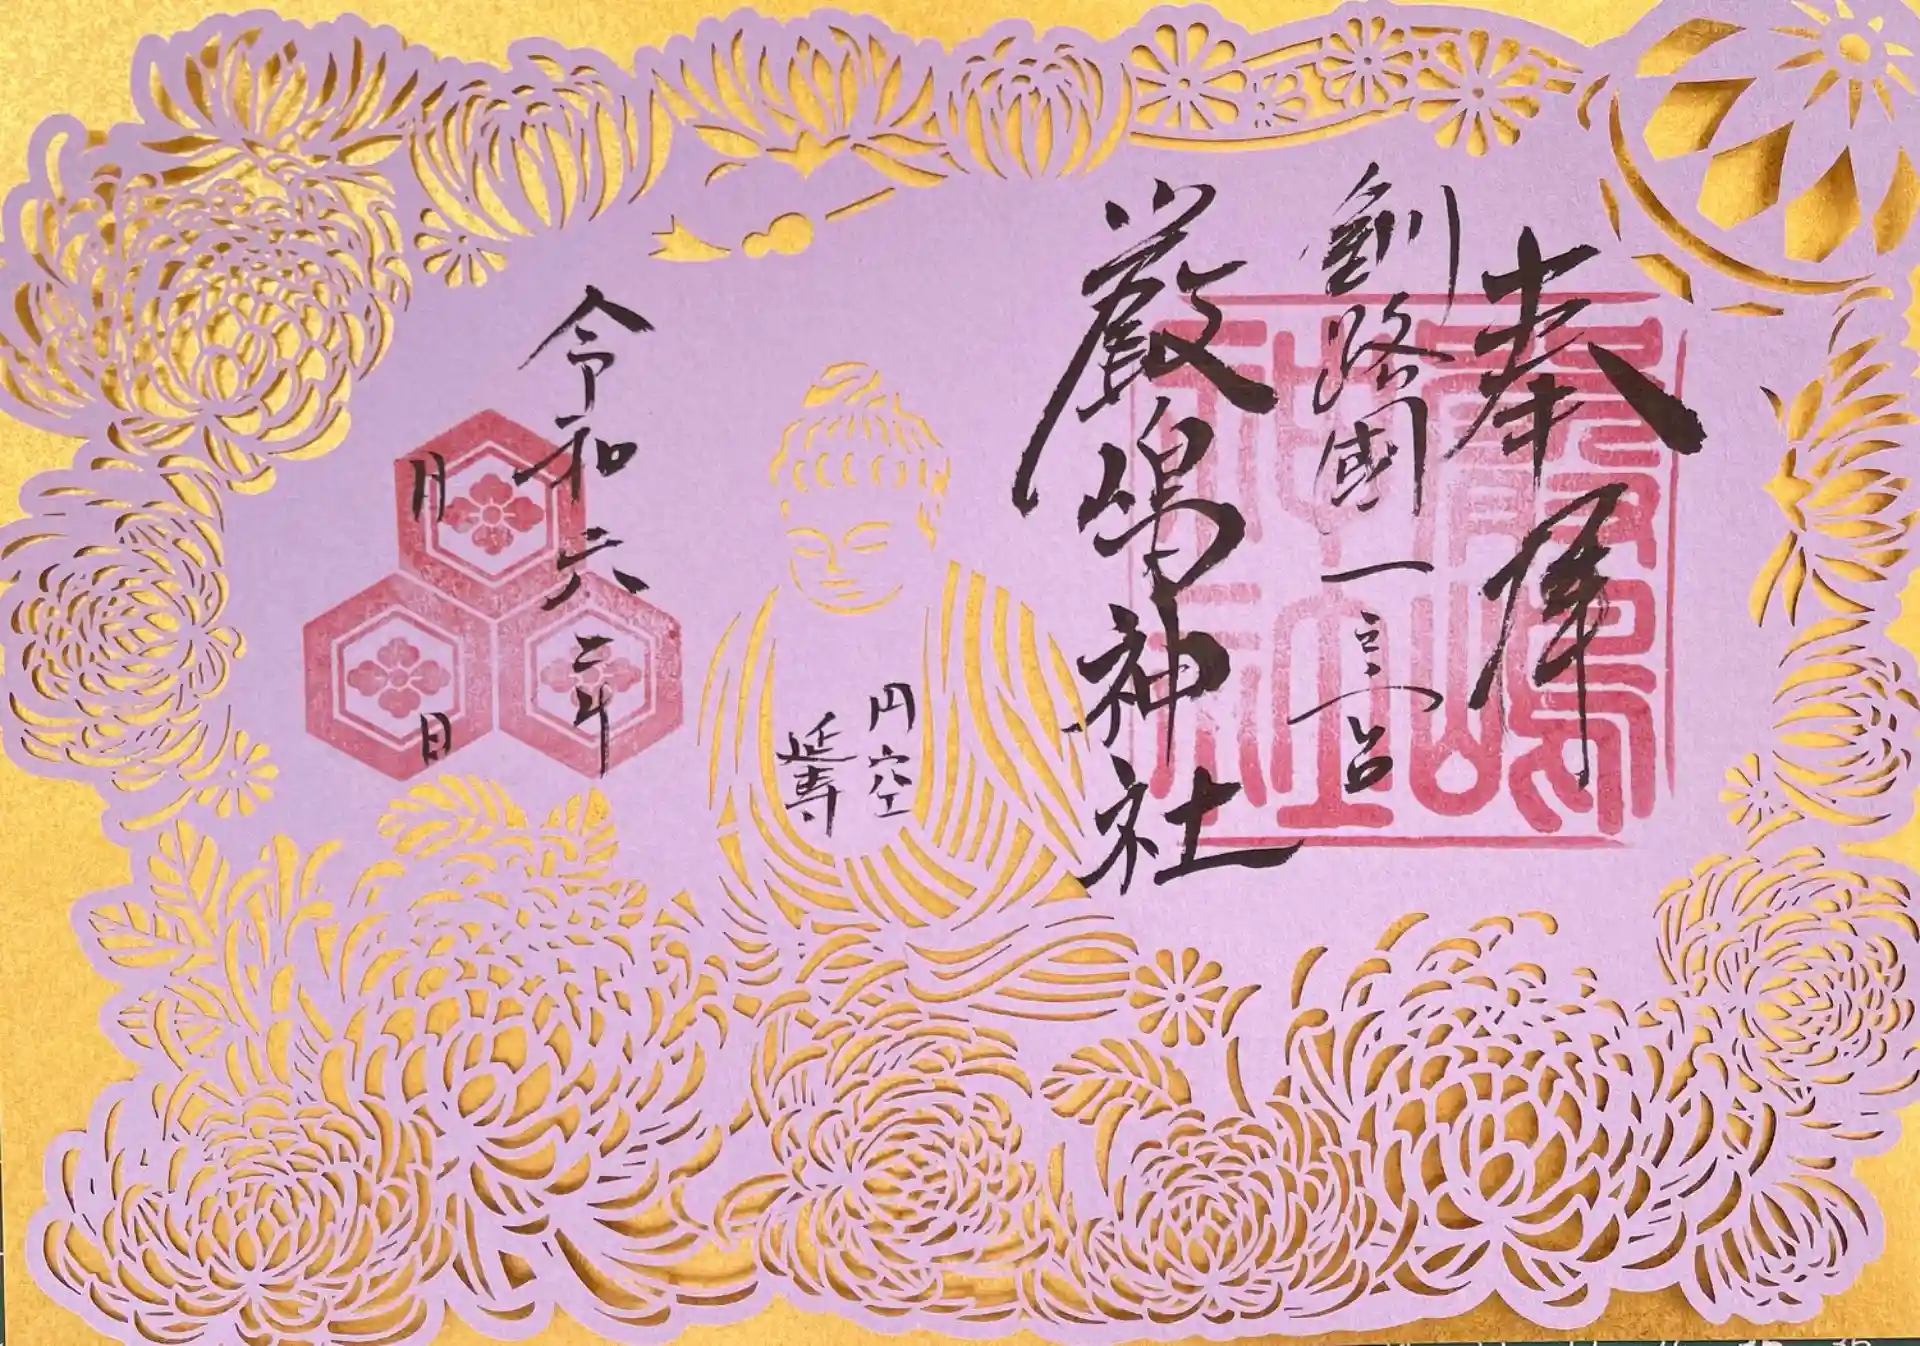 奉拝
釧路國一之宮
厳嶋神社
厳嶋神社
円空
延寿
令和六二年
月 日